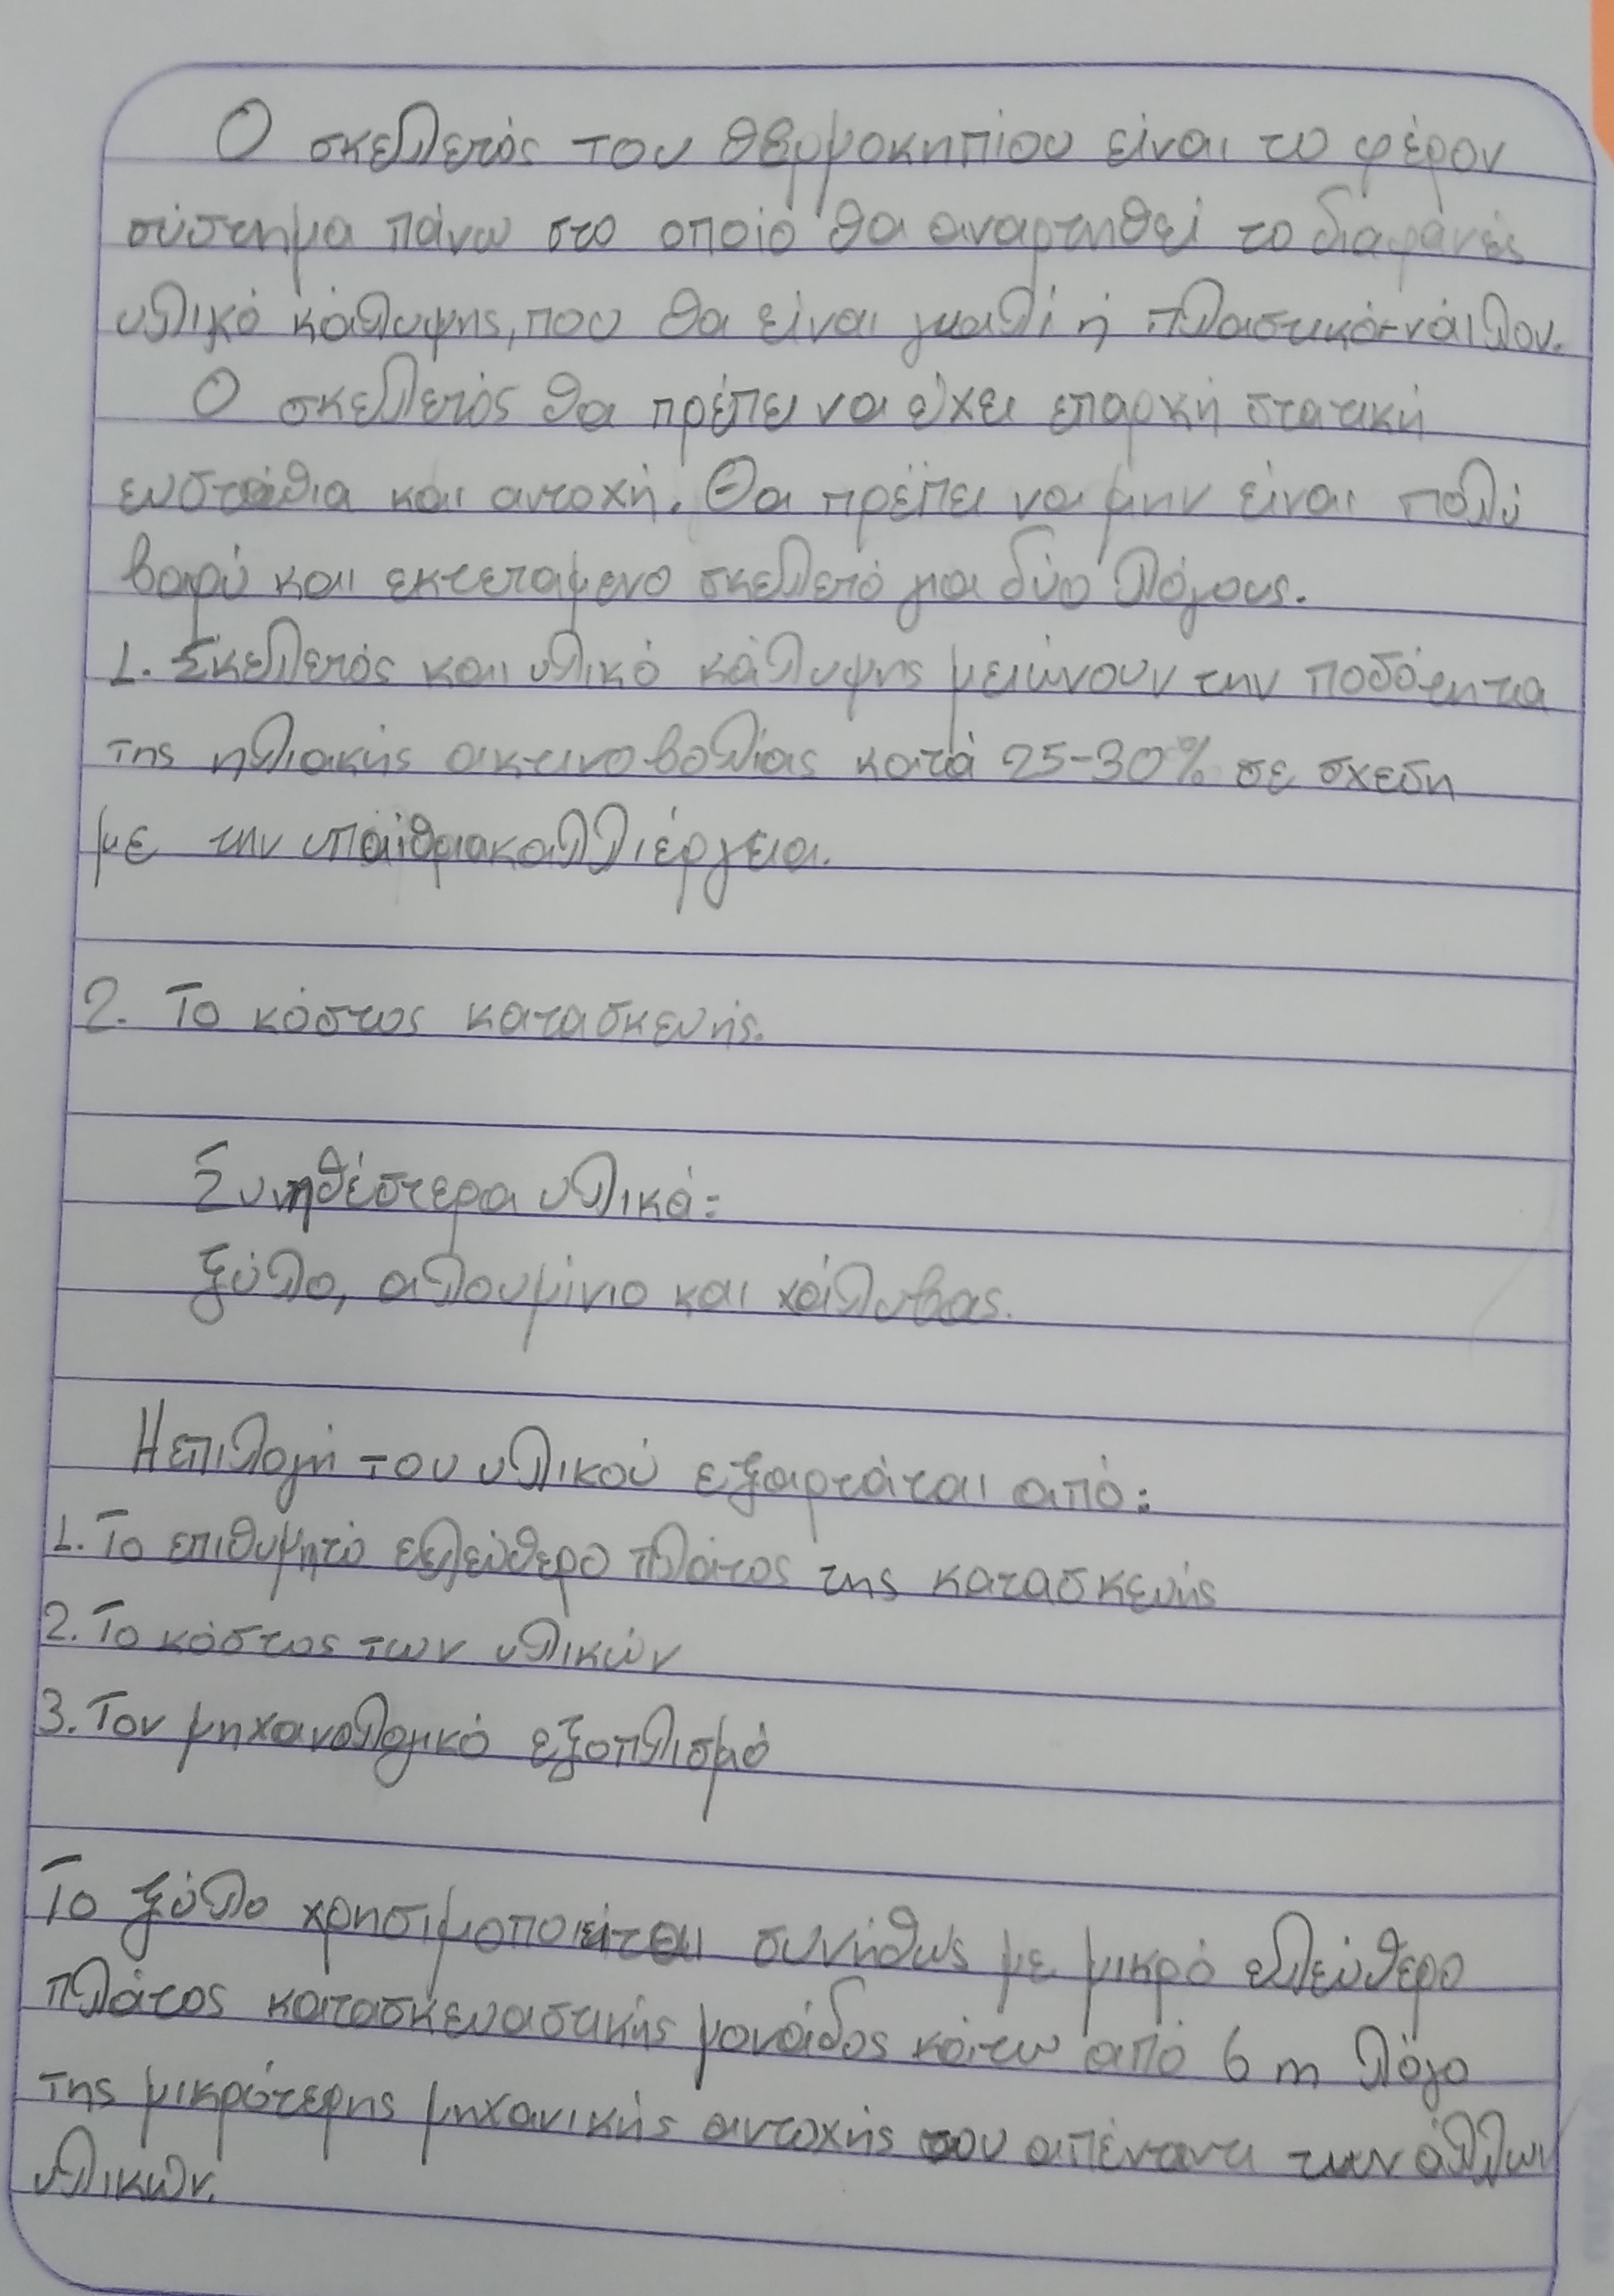 Ο σκελετός του θερμοκηπίου είναι το φέρον
σύστημα πάνω στο οποίο θα αναρτηθεί το διαφανές
υλικό κάλυψης, που θα είναι γυαλί ή πλαστικό-νάιλον.
Ο σκελετός θα πρέπει να έχει επαρκή στατική
ευστάθια και αντοχή. Θα πρέπει να μην είναι πολύ
βαρύ και εκτεταμενο σκελετό για δύο λόγους.
1. Σκελετός και υλικό κάλυψης μειώνουν την ποσότητα
της ηλιακής ακτινοβολίας κατά 25-30% σε σχεση
με την υπαίθρια καλλιέργεια.
2. Το κόστος κατασκευής.
Συνηθέστερα υλικά:
ξύλο, αλουμίνιο και χάλυβας.
Η επιλογή του υλικού εξαρτάται από:
1. Το επιθυμητό ελεύθερο πλάτος της κατασκευής
2. Το κόστος των υλικών
3. Τον μηχανολογικό εξοπλισμό
Το ξύλο χρησιμοποιείται συνήθως με μικρό ελεύθερο
πλάτος κατασκευαστικής μονάδος κάτω από 6 m λόγο
της μικρότερης μηχανικής αντοχής του απέναντι των άλλων
υλικών.